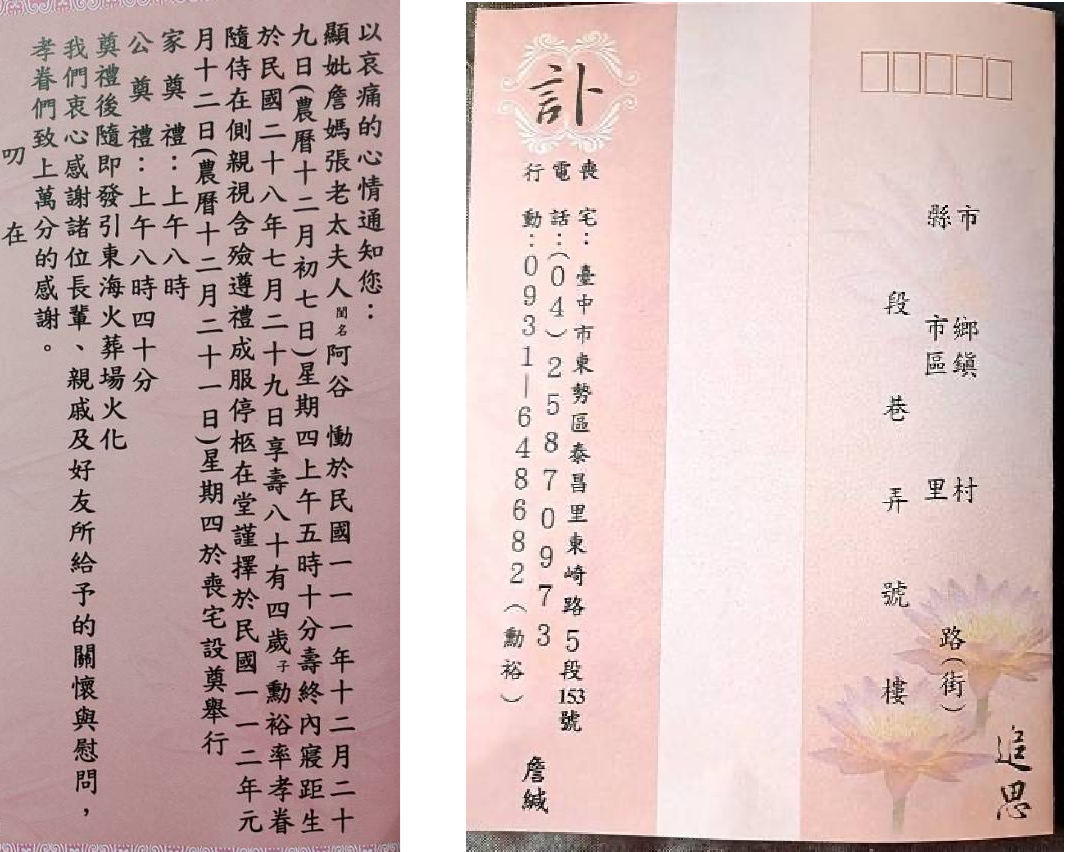 以哀痛的心情通知您：
顯妣詹媽張老太夫人閨名阿谷　慟於民國一一一年十二月二十
九日(農曆十二月初七日)星期四上午五時十分壽終內寢距生
於民國二十八年七月二十九日享壽八十有四歲子勳裕率孝眷
隨侍在側親視含殮遵禮成服停柩在堂謹擇於民國一一二年元
月十二日(農曆十二月二十一日)星期四於喪宅設奠舉行
家奠禮：上午八時
公奠禮：上午八時四十分
奠禮後隨即發引東海火葬場火化
我們衷心感謝諸位長輩、親戚及好友所給予的關懷與慰問，
孝眷們致上萬分的感謝。
叨在
市
縣
鄉鎮
市區
村
里
路(街)
段巷弄號樓
追思
訃
喪宅：臺中市東勢區泰昌里東崎路5段153號
電話：(04)25870973
行動：0931-648682（勳裕）
詹緘